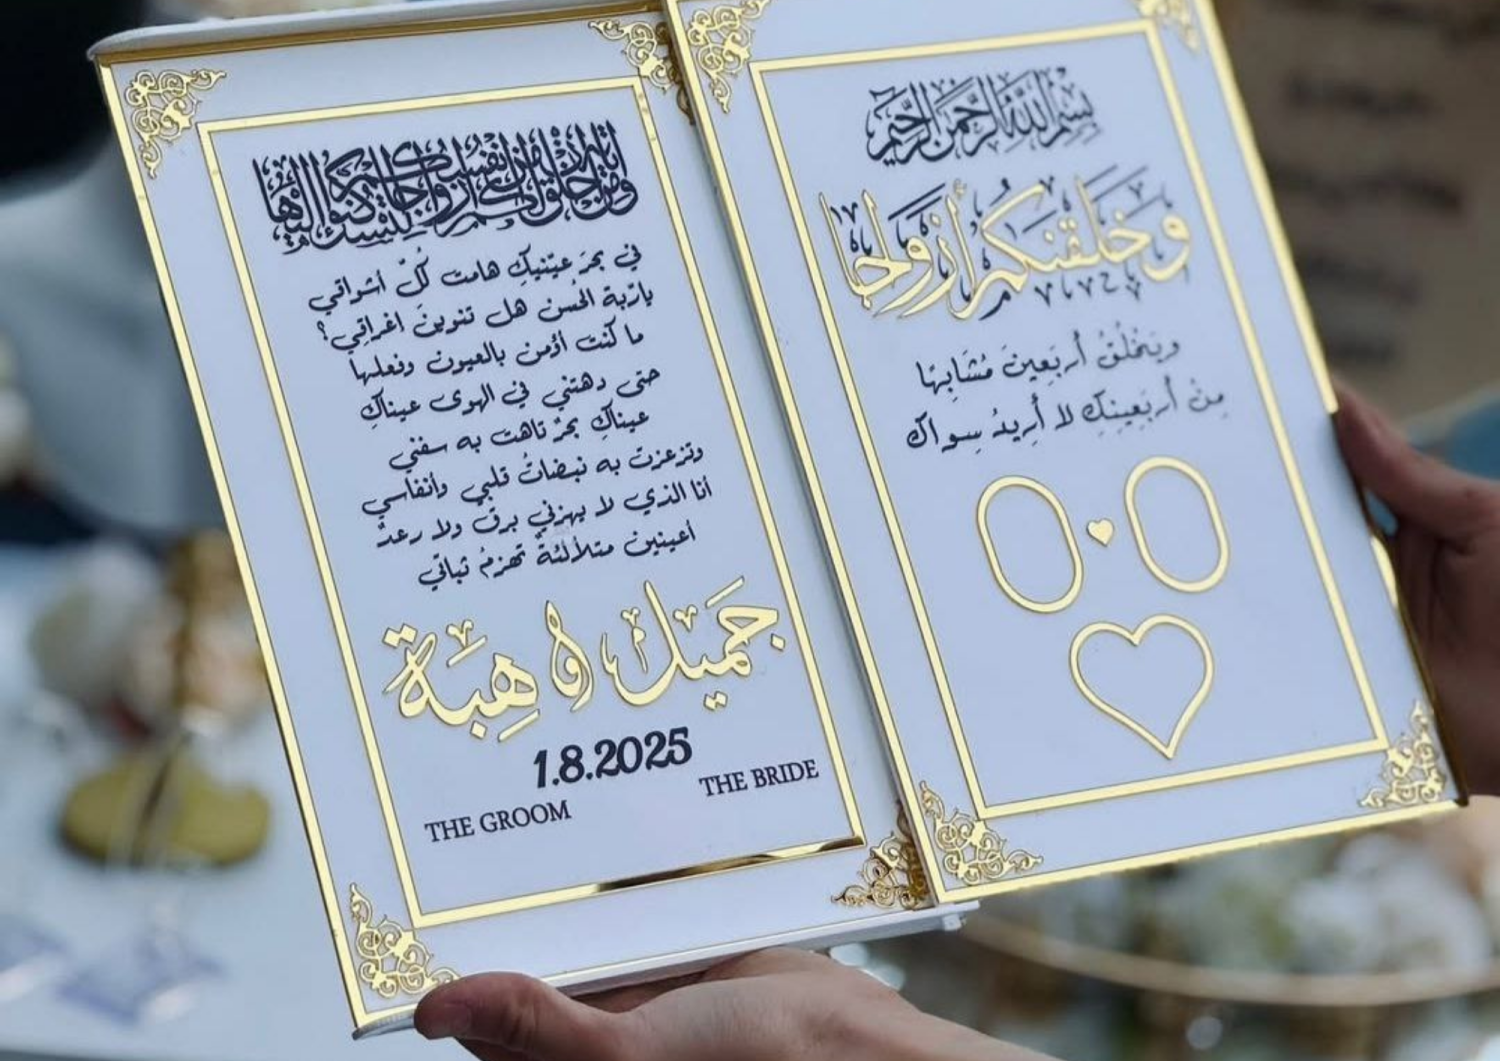 بِسْمِ اللَّهِ الرَّحْمَنِ الرَّحِيمِ
وَخَلَقْنَاكُمْ أَزْوَاجًا
ويَخْلُقُ أربَعِينَ مُشَابِهًا
مِنْ أربَعِينِكِ لا أُرِيدُ سِواكِ
ومن آياته أن خلق لكم من أنفسكم أزواجا لتسكنوا إليها
في بحرَ عيّنيكِ هامت كُلّ أشواقي
ياربّة الحُسن هل تنوينَ اغراقِي؟
ما كنت أؤمن بالعيون وفعلها
حتى دهتني في الهوى عيناكِ
عيناكِ بحرٌ تاهت به سفني
وتزعزت به نبضاتُ قلبي وأنفاسي
أنا الذي لا يهزني برقٌ ولا رعدٌ
أعينين متلألئةٌ تهزمُ ثباتي
جميل و هبة
1.8.2025
THE GROOM THE BRIDE